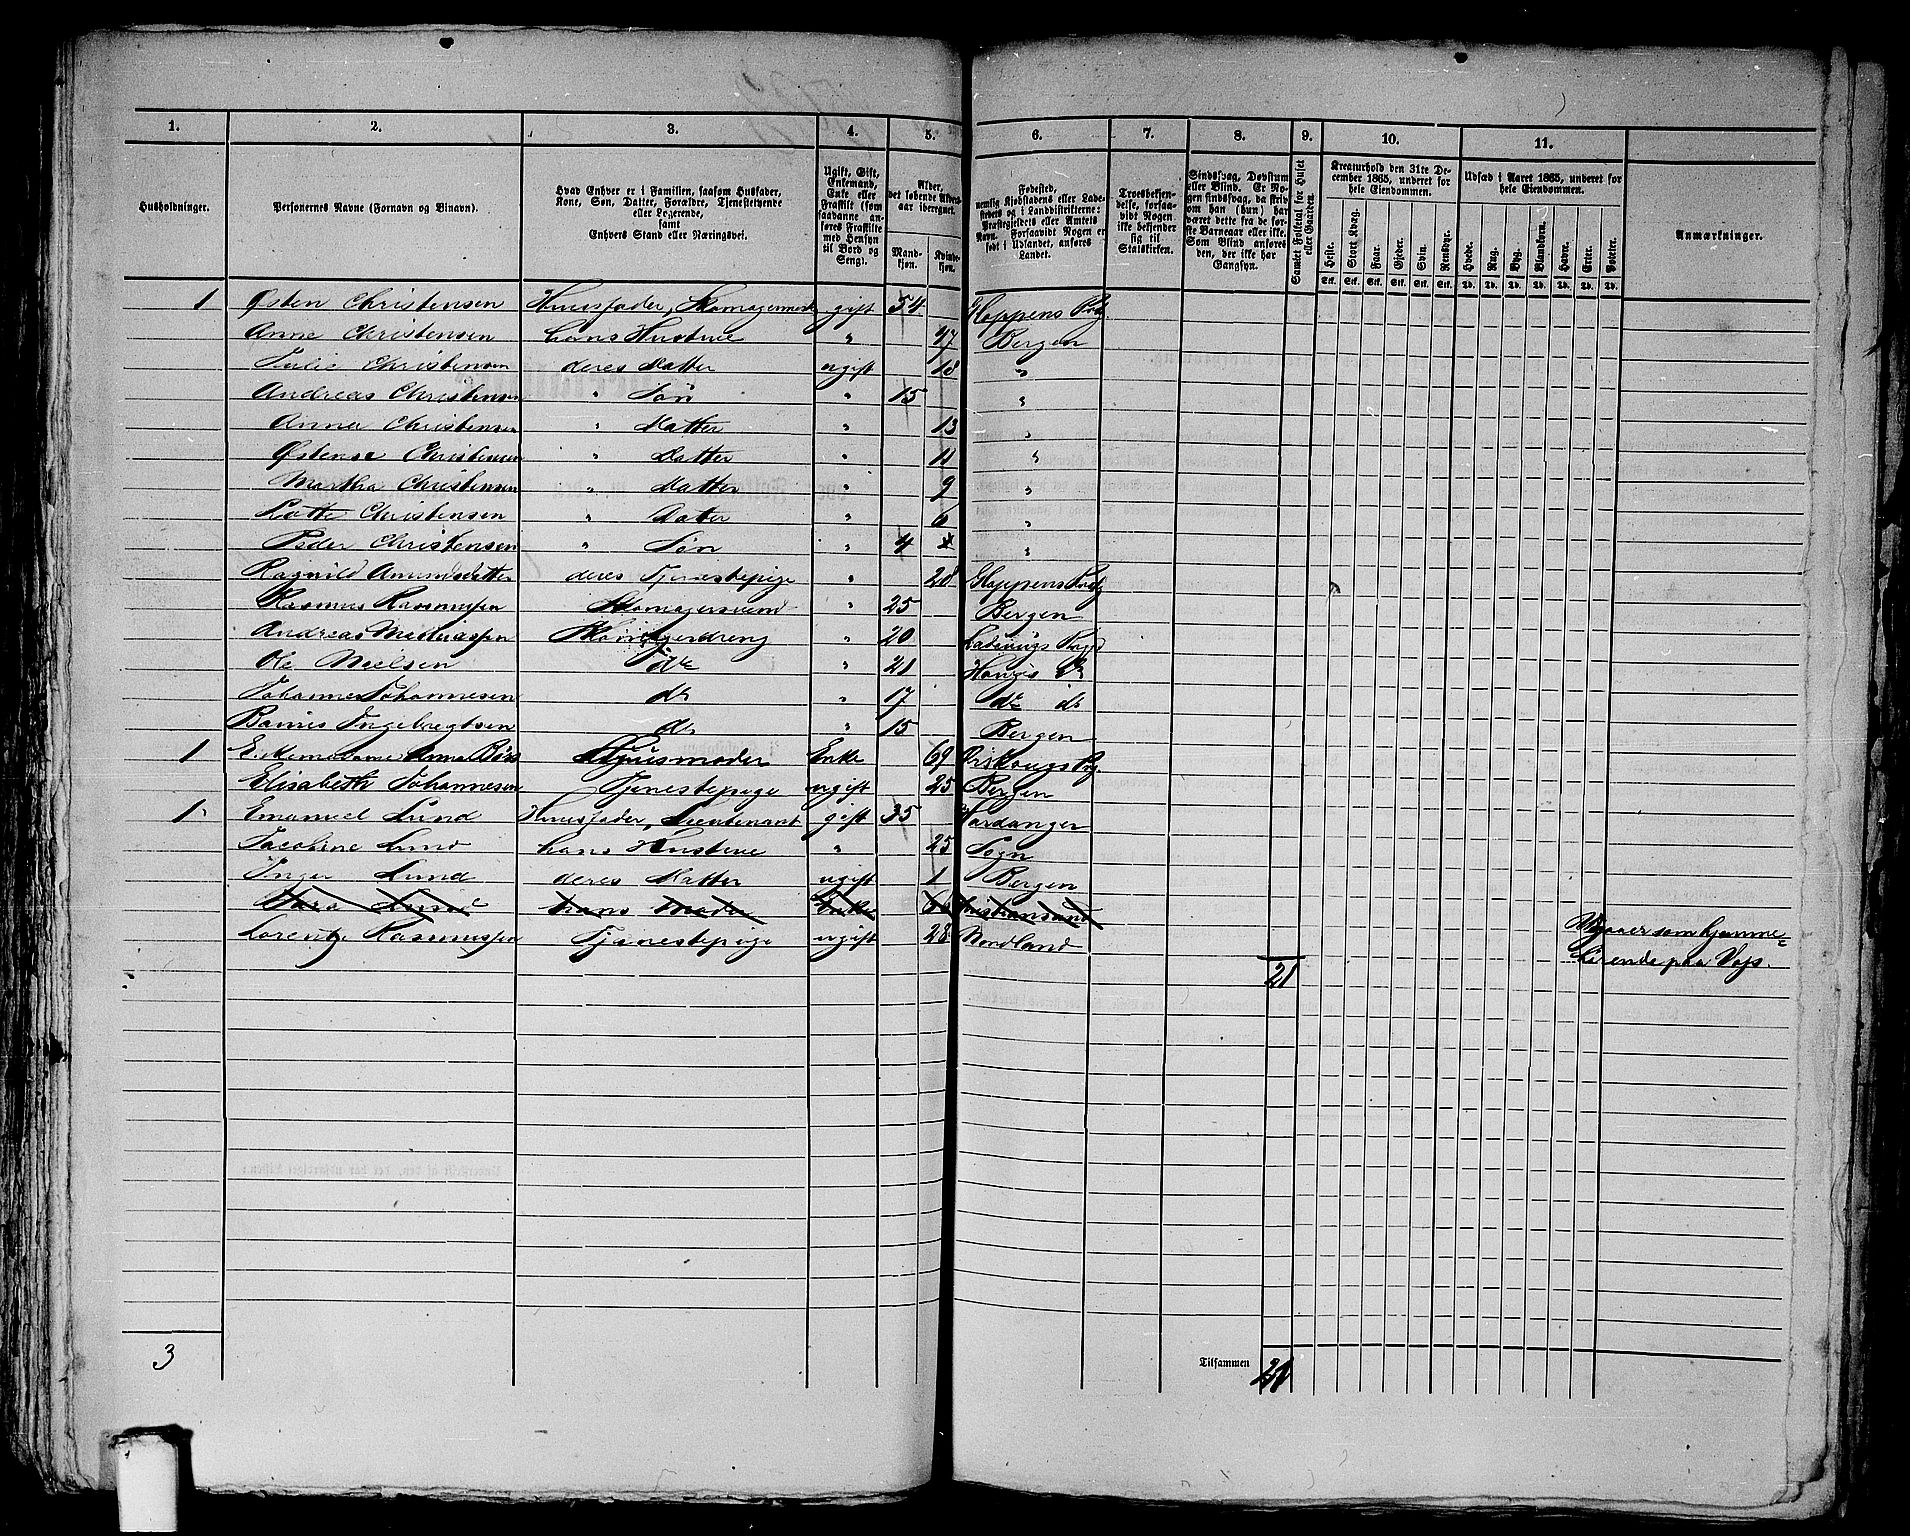 1. 2. 3. 4. 5. 6. 7. 8. 9. 10. 11.
Husholdninger.
Personernes Navne (Fornavn og Binavn).
Hvad Enhver er i Familien, saasom Husfader,
Kone, Søn, Datter, Forældre, Tjenestetyende
eller Logerende,
samt
Enhvers Stand eller Næringsvei.
Ugift, Gift,
Enkemand,
Enke eller
Fraskilt (som
saadanne an-
føres Fraskilte
med Hensyn
til Bord og
Seng).
Alder,
det løbende Alders-
aar iberegnet.
Mand-
kjøn.
Kvinde-
kjøn.
Fødested,
nemlig Kjøbstadens eller Lade-
stedets og i Landdistrikterne:
Præstegjeldets eller Amtets
Navn. Forsaavidt Nogen er
født i Udlandet, anføres
Landet.
Troesbekjen-
delse, forsaa-
vidt Nogen
ikke bekjender
sig til
Statskirken.
Sindssvag, Døvstum
eller Blind. Er No-
gen sindssvag, da skriv
om han (hun) har
været dette fra de før-
ste Barneaar eller ikke.
Som Blind anføres
den, der ikke har
Gangsyn.
Samlet Folketal for Huset
eller Gaarden.
Kreaturhold den 31te De-
cember 1865, underet for
hele Eiendommen.
Heste. Stort Kvæg. Faar. Gjeder. Svin. Rensdyr.
Stk. Stk. Stk. Stk. Stk. Stk.
Udsæd i Aaret 1865, underet for
hele Eiendommen.
Hvede. Rug. Byg. Blandkorn. Havre. Erter. Poteter.
Td. Td. Td. Td. Td. Td. Td.
Anmærkninger.
1 Østen Christensen Huusfader, Skomagermester gift 54 Gloppens Pgj.
Anne Christensen hans Hustrue " 47 Bergen
Julie Christensen deres Datter ugift 18 "
Andreas Christensen " Søn " 15 "
Anna Christensen " Datter " 13 "
Østense Christensen " Datter " 11 "
Martha Christensen " Datter " 9 "
Lotte Christensen " Datter " 6 "
Peder Christensen " Søn " 4 "
Ragnild Amundsdatter deres Tjenestepige " 28 Gloppens
Rasmus Rasmussen Skomagersvend " 25 Bergen
Andreas Skomagerdreng " 20
Ole Nielsen do " 21
Johannes Johannesen do " 17 do do
Ingebregtsen do " 15 Bergen
1 Anna Huusmoder Enke 69
Elisabeth Johannesen Tjenestepige ugift 25 Bergen
1 Emanuel Lund Huusfader, Lieutenant gift 35 Hardanger
Jacobine Lund hans Hustrue " 25 Sogn
Inger Lund deres Datter ugift 1 Bergen
Lund hans Moder Enke Christiansand
Rasmussen Tjenestepige ugift 28 Nordland
21
Udgaaer som hjemme-
paa Voss.
3
Tilsammen 21